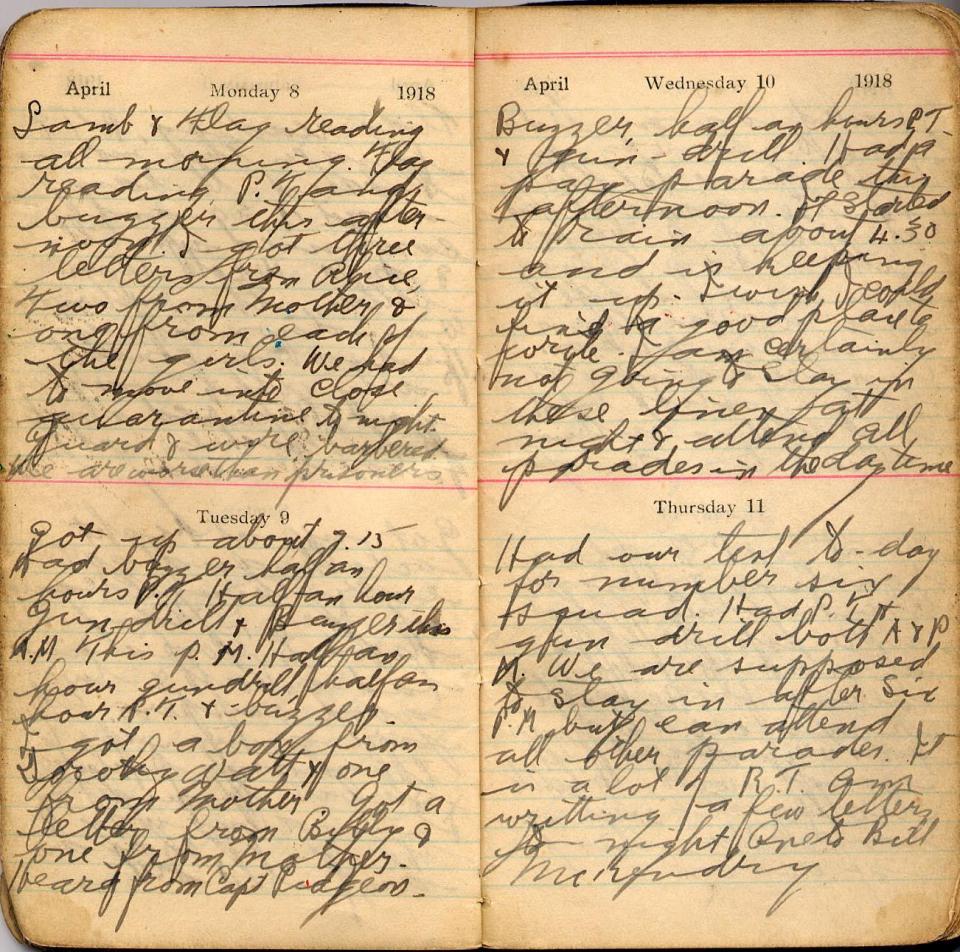 April Monday 8 1918
Lamp & Flag reading
all morning. Flag
reading P.T. and
buzzer this after-
noon. I got three
letters from
Two from Mother &
one from each of
the girls. We had
to move into close
quarantine to night.
Guard & wire barbered
We are worse than prisoners
Tuesday 9
Got up about 7.15
Had buzzer half an
hours P.T. Half an hour
Gun drill & Buzzer this
A.M This P.M. Half an
hour gundrill half an
hour P.T. & buzzer.
I got a box from
Dorothy Watt & one
from Mother Got a
letter from Billy &
one from Mother.
heard from Capt Pidgeon.
April Wednesday 10 1918
Buzzer, half an hours P.T.
& gun-drill. Had a
pay parade this
afternoon. It started
to rain about 4.30
and is keeping
it up. I wish I could
find a good place to
write. I am certainly
not going to stay in
these lines att
night & attend all
parades in the daytime
Thursday 11
Had our test to-day
for number six
squad. Had P.T. &
gun drill both A & P
M. We are supposed
to stay in after Six
P.M but can attend
all other parades. It
is a lot of R.T. am
writting a few letters
to night One to Bill
McKendry